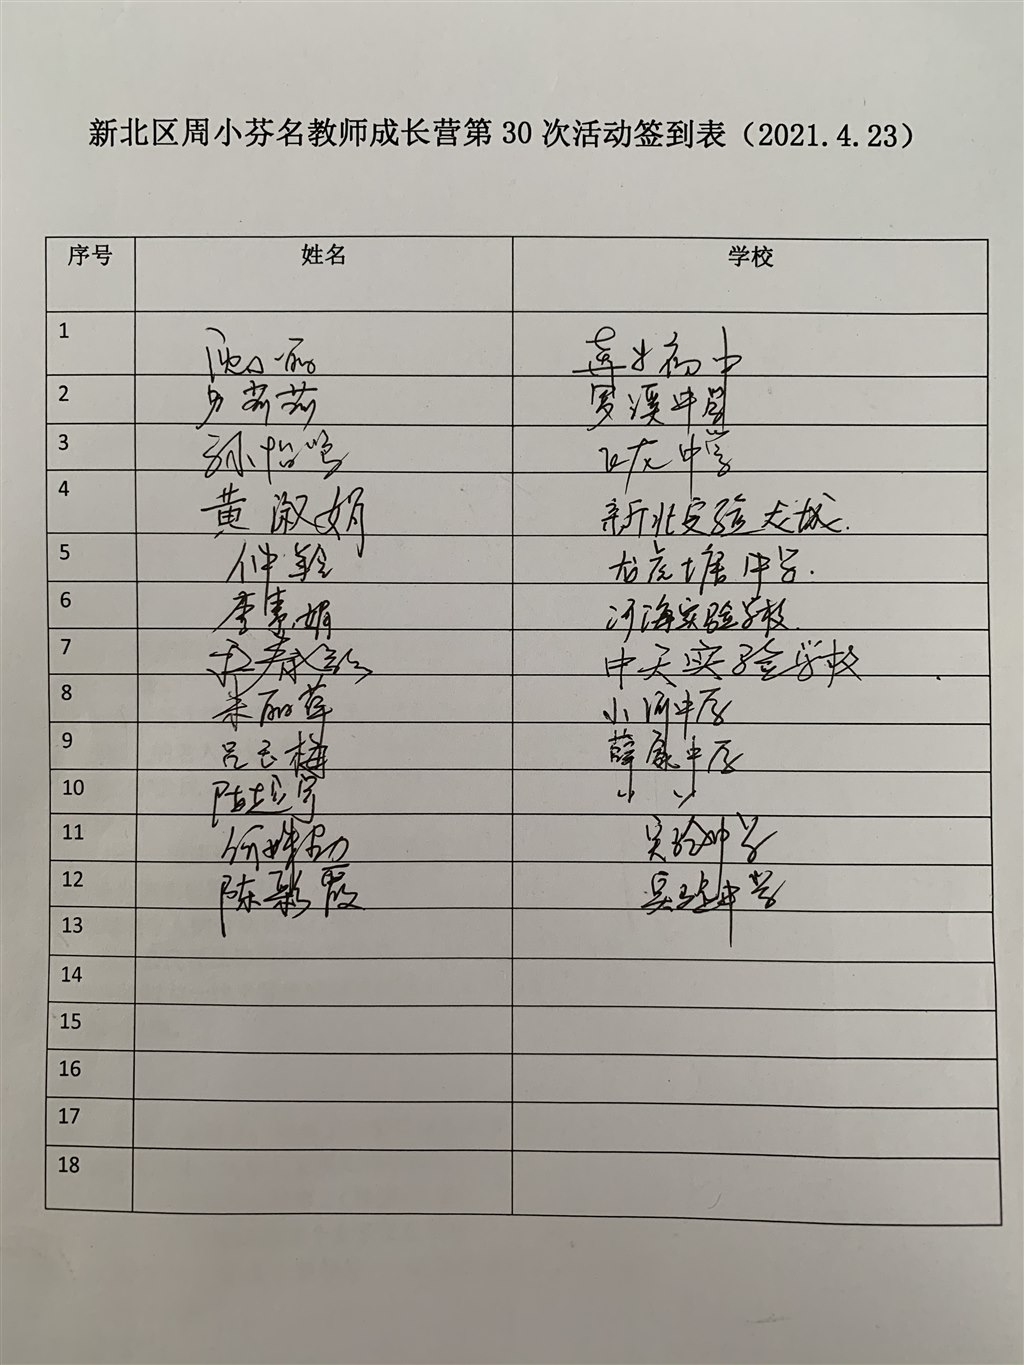 新北区周小芬名教师成长营第 30 次活动签到表（2021.4.23）
序号 姓名 学校
1
2 罗溪中学
3 孙怡鸣 飞龙中学
4 黄淑娟 新北实验龙城
5 仲铃 龙虎塘中学.
6 李慧娟 河海实验学校.
7 中天实验学校
8 朱丽萍 小河中学
9 吕玉梅 薛家中学
10 陆超宇 〃 〃
11 实验中学
12 陈彩霞 吴中学
13
14
15
16
17
18